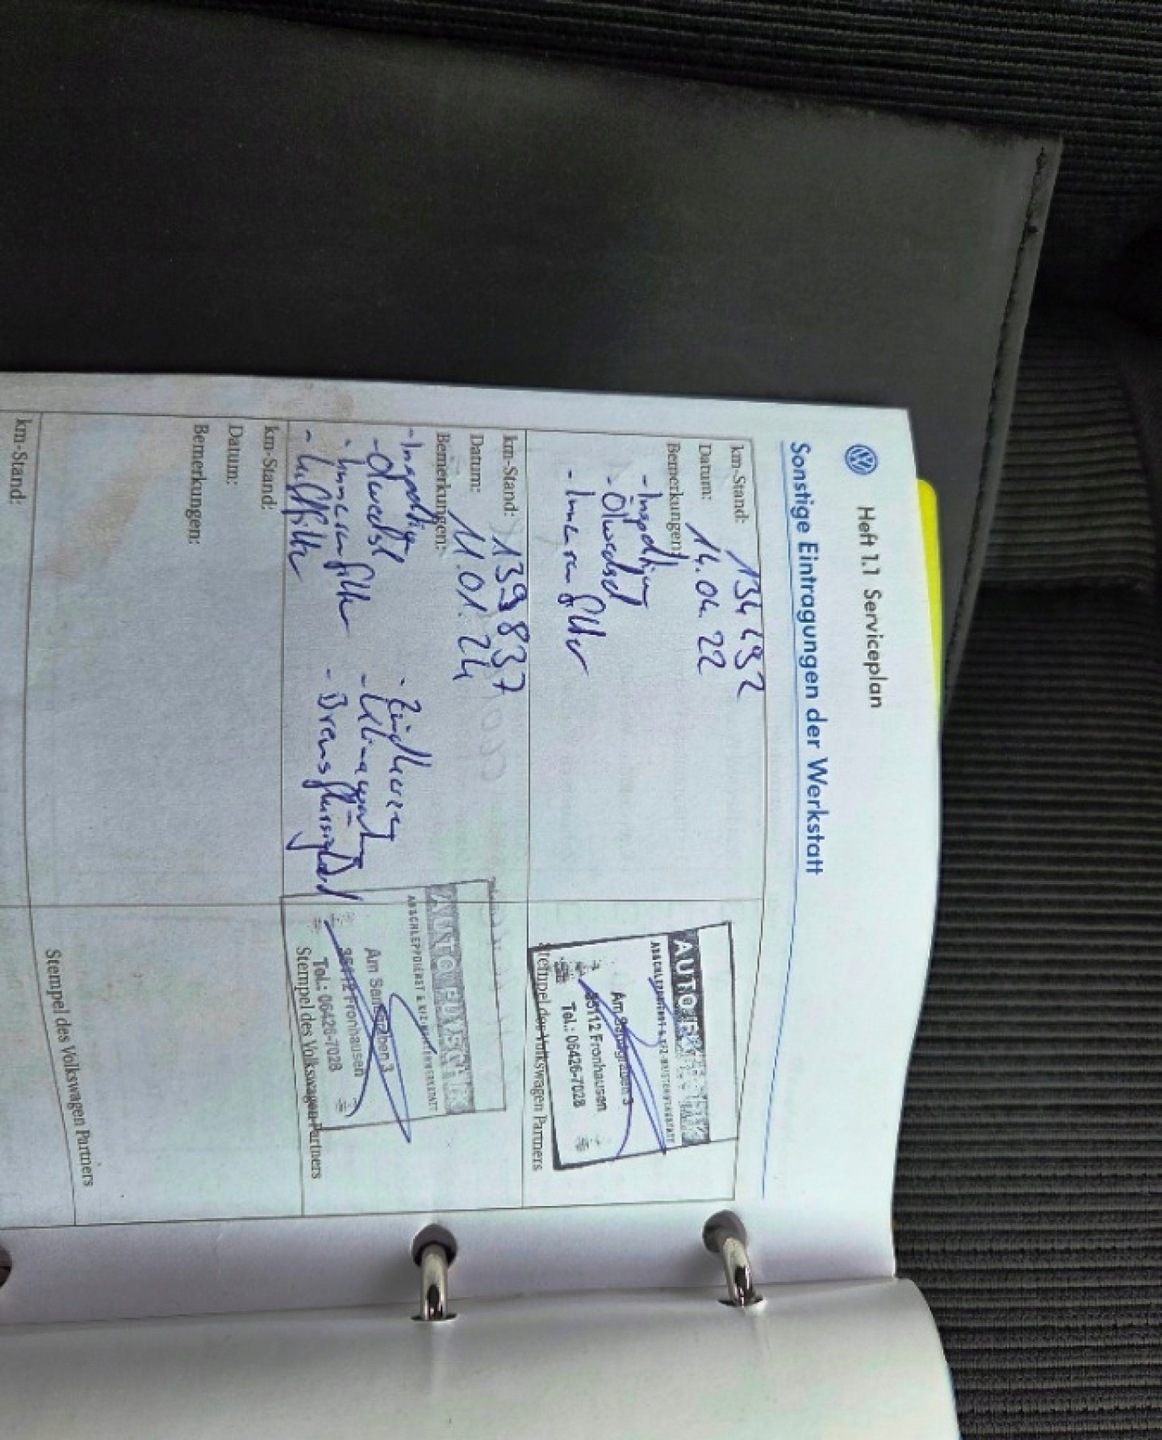 Heft 1.1 Serviceplan
Sonstige Eintragungen der Werkstatt
km-Stand: 134 492
Datum: 14.04.22
Bemerkungen:
- Inspektion
- Ölwechsel
- Innenraumfilter
AUTO
ABSCHLEPPDIENST & KFZ-MEISTERWERKSTATT
Am Samengraben 3
35112 Fronhausen
Tel.: 06426-7028
Stempel des Volkswagen Partners
km-Stand: 139 837
Datum: 11.01.24
Bemerkungen:
- Inspektion
- Ölwechsel
- Innenraumfilter
- Luftfilter
- Zündkerzen
- Klimawartung
- Bremsflüssigkeit
AUTO
ABSCHLEPPDIENST & KFZ-MEISTERWERKSTATT
Am
35112 Fronhausen
Tel.: 06426-7028
Stempel des Volkswagen Partners
km-Stand:
Datum:
Bemerkungen:
Stempel des Volkswagen Partners
km-Stand: